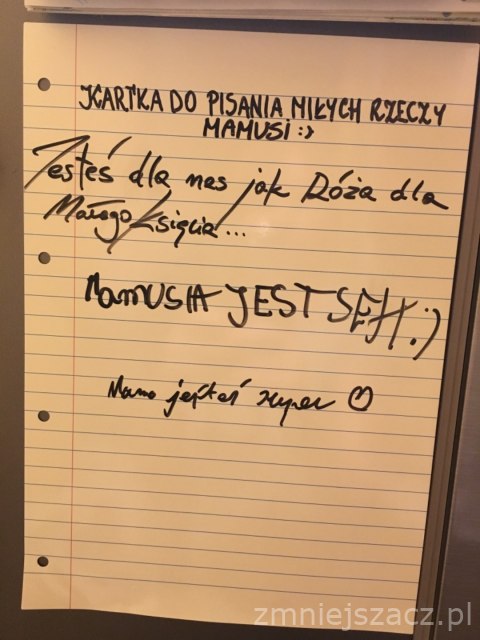 KARTKA DO PISANIA MIŁYCH RZECZY
MAMUSI :)
Jesteś dla nas jak Róża dla
Małego Księcia...
MAMUSIA JEST SEXI :)
Mamo jesteś super ♡
zmniejszacz.pl